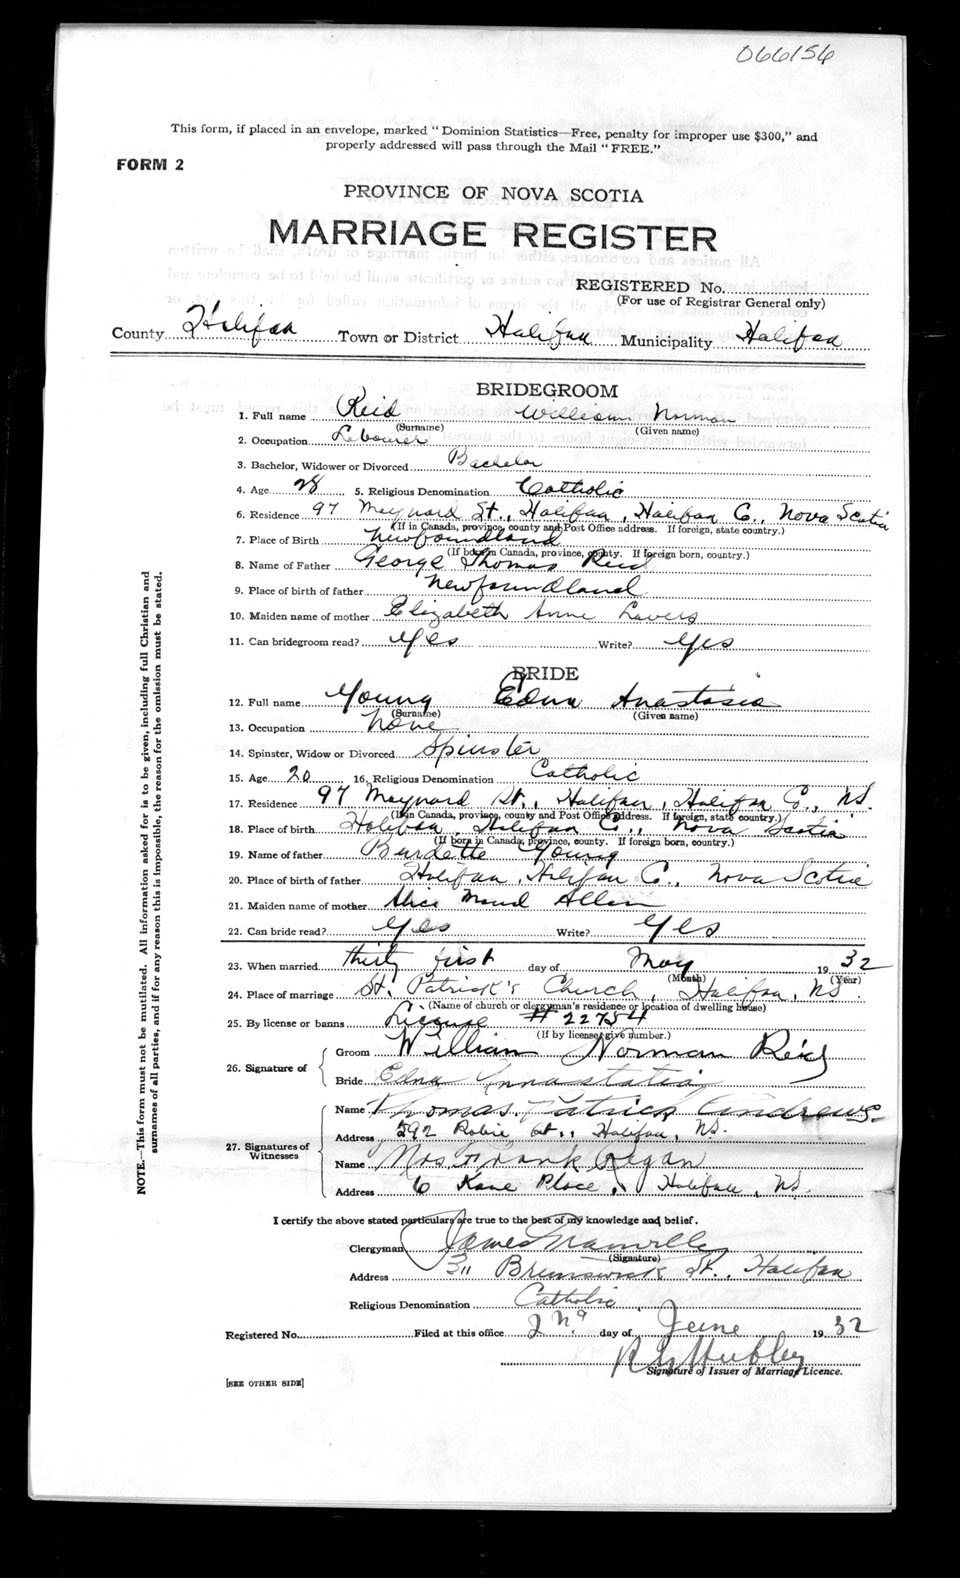 066156
This form, if placed in an envelope, marked "Dominion Statistics—Free, penalty for improper use $300," and
properly addressed will pass through the Mail "FREE."
FORM 2
PROVINCE OF NOVA SCOTIA
MARRIAGE REGISTER
REGISTERED No.
(For use of Registrar General only)
County Halifax Town or District Halifax Municipality Halifax
BRIDEGROOM
1. Full name Reid William Norman
(Surname) (Given name)
2. Occupation Labourer
3. Bachelor, Widower or Divorced Bachelor
4. Age 28 5. Religious Denomination Catholic
6. Residence 97 Maynard St., Halifax, Halifax Co., Nova Scotia
(If in Canada, province, county and Post Office address. If foreign, state country.)
7. Place of Birth Newfoundland
(If born in Canada, province, county. If foreign born, country.)
8. Name of Father George Thomas Reid
9. Place of birth of father Newfoundland
10. Maiden name of mother Elizabeth Anne Lavers
11. Can bridegroom read? Yes Write? Yes
BRIDE
12. Full name Young Edna Anastasia
(Surname) (Given name)
13. Occupation None
14. Spinster, Widow or Divorced Spinster
15. Age 20 16. Religious Denomination Catholic
17. Residence 97 Maynard St., Halifax, Halifax Co., N.S.
(If in Canada, province, county and Post Office address. If foreign, state country.)
18. Place of birth Halifax, Halifax Co., Nova Scotia
(If born in Canada, province, county. If foreign born, country.)
19. Name of father Burdette Young
20. Place of birth of father Halifax, Halifax Co., Nova Scotia
21. Maiden name of mother Alice Maud Allen
22. Can bride read? Yes Write? Yes
23. When married thirty first day of May 1932
(Month) (Year)
24. Place of marriage St. Patrick's Church, Halifax, N.S.
(Name of church or clergyman's residence or location of dwelling house)
25. By license or banns License # 22754
(If by license give number.)
26. Signature of Groom William Norman Reid
Bride Edna Annastatia
27. Signatures of Witnesses Name Thomas Patrick Andrews.
Address 292 Robie St., Halifax, N.S.
Name Mrs Frank Regan
Address 6 Kane Place, Halifax, N.S.
I certify the above stated particulars are true to the best of my knowledge and belief.
Clergyman James
(Signature)
Address 311 Brunswick St., Halifax
Religious Denomination Catholic
Registered No. Filed at this office 2nd day of June 1932
Hubley
Signature of Issuer of Marriage Licence.
[SEE OTHER SIDE]
NOTE.—This form must not be mutilated. All information asked for is to be given, including full Christian and
surnames of all parties, and if for any reason this is impossible, the reason for the omission must be stated.